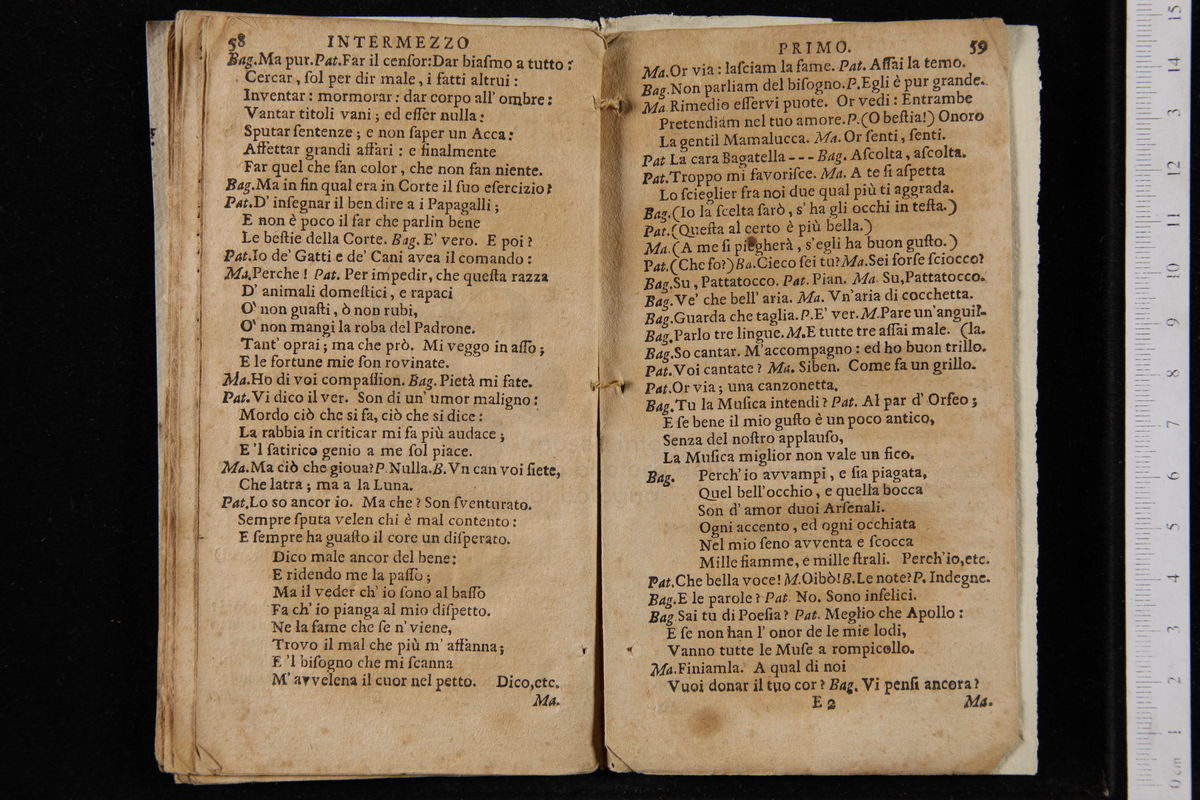 58 INTERMEZZO
Bag.Ma pur.Pat.Far il cenſor:Dar biaſmo a tutto:
Cercar, ſol per dir male, i fatti altrui:
Inventar: mormorar: dar corpo all' ombre:
Vantar titoli vani; ed eſſer nulla:
Sputar ſentenze; e non ſaper un Acca:
Affettar grandi affari: e finalmente
Far quel che fan color, che non fan niente.
Bag.Ma in fin qual era in Corte il ſuo eſercizio?
Pat.D' inſegnar il ben dire a i Papagalli;
E non è poco il far che parlin bene
Le beſtie della Corte. Bag. E' vero. E poi?
Pat.Io de' Gatti e de' Cani avea il comando:
Ma.Perche! Pat. Per impedir, che queſta razza
D' animali domeſtici, e rapaci
O' non guaſti, ò non rubi,
O' non mangi la roba del Padrone.
Tant' oprai; ma che prò. Mi veggo in aſſo;
E le fortune mie ſon rovinate.
Ma.Ho di voi compaſſion. Bag. Pietà mi fate.
Pat.Vi dico il ver. Son di un' umor maligno:
Mordo ciò che si fa, ciò che si dice:
La rabbia in criticar mi fa più audace;
E 'l ſatirico genio a me ſol piace.
Ma.Ma ciò che gioua?P.Nulla.B.Vn can voi ſiete,
Che latra; ma a la Luna.
Pat.Lo so ancor io. Ma che? Son ſventurato.
Sempre ſputa velen chi è mal contento:
E ſempre ha guaſto il core un diſperato.
Dico male ancor del bene:
E ridendo me la paſſo;
Ma il veder ch' io ſono al baſſo
Fa ch' io pianga al mio diſpetto.
Ne la fame che ſe n' viene,
Trovo il mal che più m' affanna;
E 'l biſogno che mi ſcanna
M' avvelena il cuor nel petto. Dico,etc.
Ma.
PRIMO. 59
Ma.Or via: laſciam la fame. Pat. Aſſai la temo.
Bag.Non parliam del biſogno.P.Egli è pur grande.
Ma Rimedio eſſervi puote. Or vedi: Entrambe
Pretendiam nel tuo amore.P.(O beſtia!) Onoro
La gentil Mamalucca. Ma. Or ſenti, ſenti.
Pat La cara Bagatella - - - Bag. Aſcolta, aſcolta.
Pat.Troppo mi favoriſce. Ma. A te ſi aſpetta
Lo ſcieglier fra noi due qual più ti aggrada.
Bag.(Io la ſcelta farò, s' ha gli occhi in teſta.)
Pat.(Queſta al certo è più bella.)
Ma.(A me ſi piegherà, s'egli ha buon guſto.)
Pat.(Che fo?)Ba.Cieco ſei tu?Ma.Sei forſe ſciocco?
Bag.Su, Pattatocco. Pat. Pian. Ma. Su,Pattatocco.
Bag.Ve' che bell' aria. Ma. Vn'aria di cocchetta.
Bag.Guarda che taglia.P.E' ver.M.Pare un'anguil-
Bag.Parlo tre lingue.M.E tutte tre aſſai male. (la.
Bag.So cantar. M'accompagno: ed ho buon trillo.
Pat.Voi cantate? Ma. Siben. Come fa un grillo.
Pat.Or via; una canzonetta.
Bag.Tu la Muſica intendi? Pat. Al par d' Orfeo;
E ſe bene il mio guſto è un poco antico,
Senza del noſtro applauſo,
La Muſica miglior non vale un fico.
Bag. Perch' io avvampi, e ſia piagata,
Quel bell'occhio, e quella bocca
Son d' amor duoi Arſenali.
Ogni accento, ed ogni occhiata
Nel mio ſeno avventa e ſcocca
Mille fiamme, e mille ſtrali. Perch'io,etc.
Pat.Che bella voce! M.Oibò!B.Le note?P. Indegne.
Bag.E le parole? Pat. No. Sono infelici.
Bag Sai tu di Poeſia? Pat. Meglio che Apollo:
E ſe non han l' onor de le mie lodi,
Vanno tutte le Muſe a rompicollo.
Ma.Finiamla. A qual di noi
Vuoi donar il tuo cor? Bag. Vi penſi ancora?
E 2 Ma.